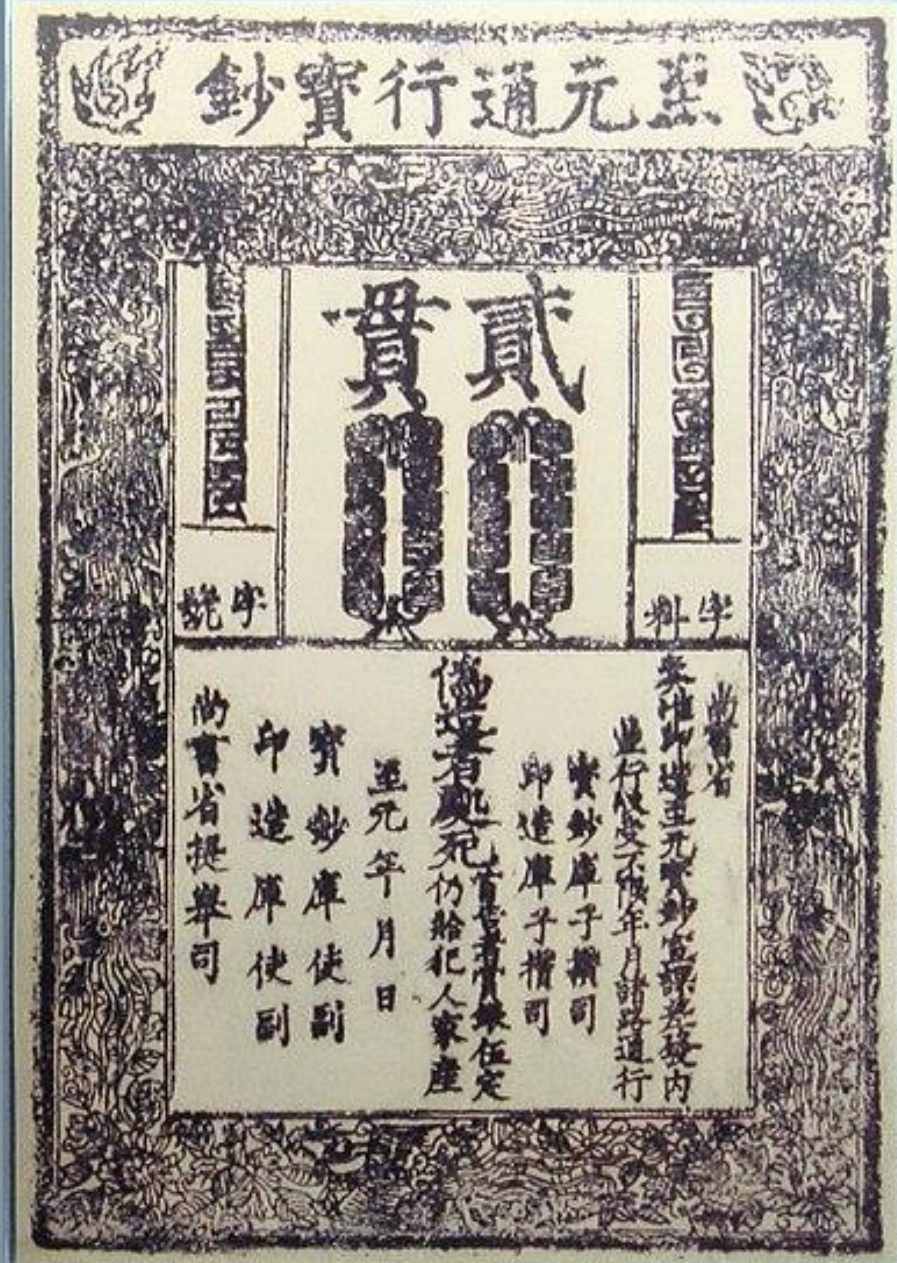 至元通行寶鈔
貳貫
字料
字號
尚書省
奏准印造至元寶鈔宣課差發內
並行收受不限年月諸路通行
寶鈔庫子攢司
印造庫子攢司
偽造者處死首告者賞銀伍定
仍給犯人家產
至元年月日
寶鈔庫使副
印造庫使副
尚書省提舉司